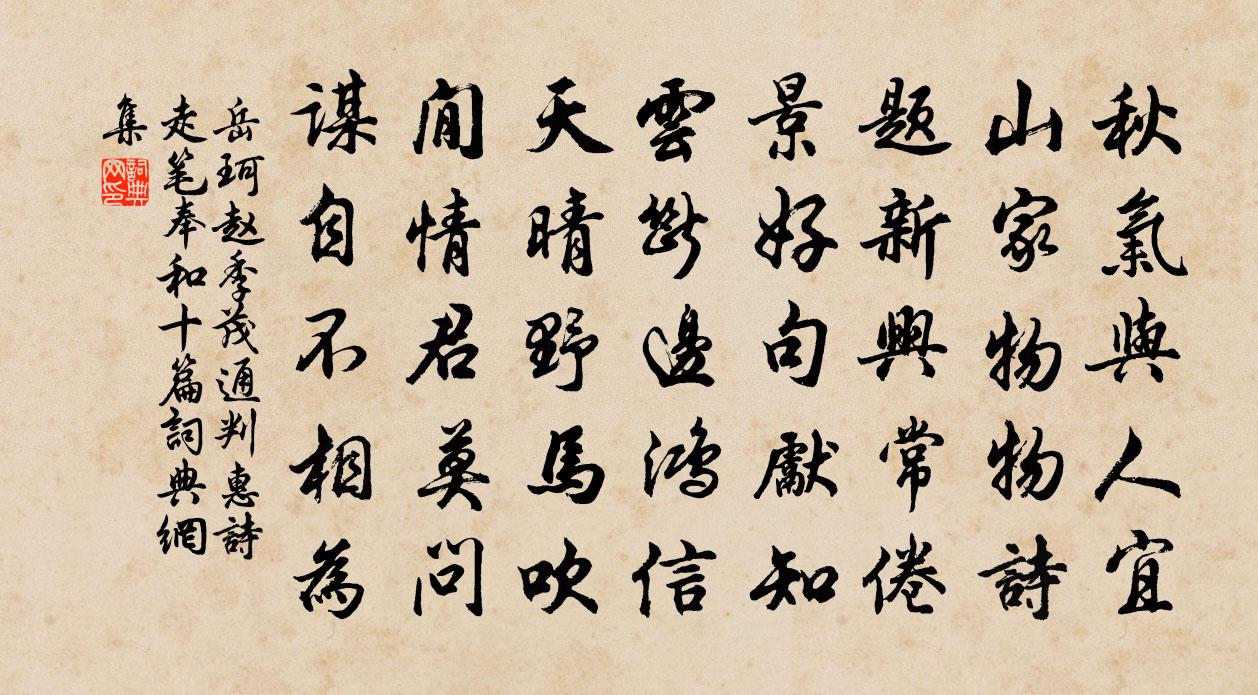 秋氣與人宜
山家物物詩
題新興常倦
景好句獻知
雲斷邊鴻信
天晴野馬吹
閒情君莫問
謀自不相為
岳珂赵季茂通判惠詩
走笔奉和十篇詞典網
集
詞典网印